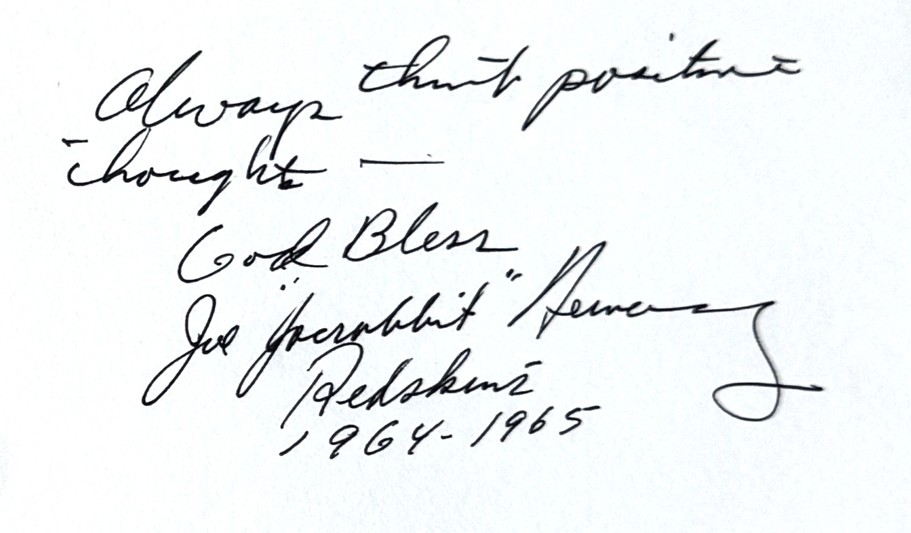 Always think positive
thoughts —
God Bless
Joe "Jacrabbit" Hernandez
Redskins
1964-1965